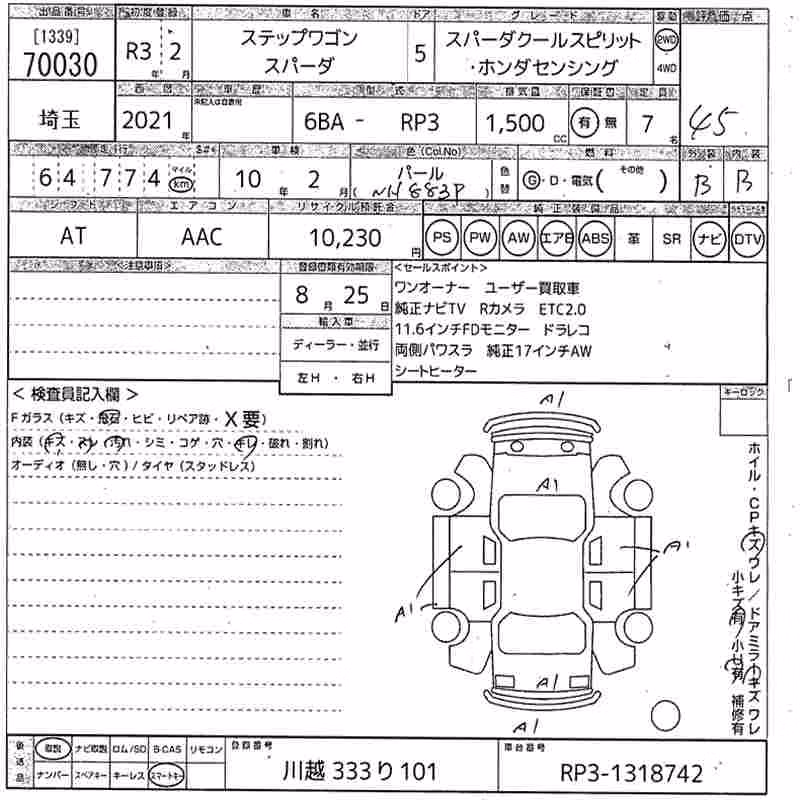 出品番号 初度登録 車名 ドア グレード 駆動 評価点
[1339]
70030 R3年 2月 ステップワゴン スパーダ 5 スパーダクールスピリット・ホンダセンシング 2WD 4WD
車歴 型式 排気量 保証書 定員
埼玉 2021年 未記入は自家用 6BA - RP3 1,500cc 有 無 7名 4.5
走行 車検 色(Col.No) 燃料 外装 内装
64,774 マイル km 10年 2月 パール (NH883P) 色替 G・D・電気( その他 ) B B
シフト エアコン リサイクル預託金 純正装備品
AT AAC 10,230円 PS PW AW エアB ABS 革 SR ナビ DTV
<注意事項> 登録書類有効期限 <セールスポイント>
8月 25日
輸入車
ディーラー・並行
左H・右H
ワンオーナー ユーザー買取車
純正ナビTV Rカメラ ETC2.0
11.6インチFDモニター ドラレコ
両側パワスラ 純正17インチAW
シートヒーター
< 検査員記入欄 > キーロック
Fガラス(キズ・飛石・ヒビ・リペア跡・X要)
内装(キズ・スレ・汚れ・シミ・コゲ・穴・キレ・破れ・割れ)
オーディオ(無し・穴)/タイヤ(スタッドレス)
A1
A1
A1
A1
A1
A1
ホイル・CPキズワレ/ドアミラーキズワレ
小キズ有/小凹有 補修有
後送品 取説 ナビ取説 ロム/SD B-CAS リモコン
ナンバー スペアキー キーレス スマートキー
登録番号 川越 333 り 101
車台番号 RP3-1318742